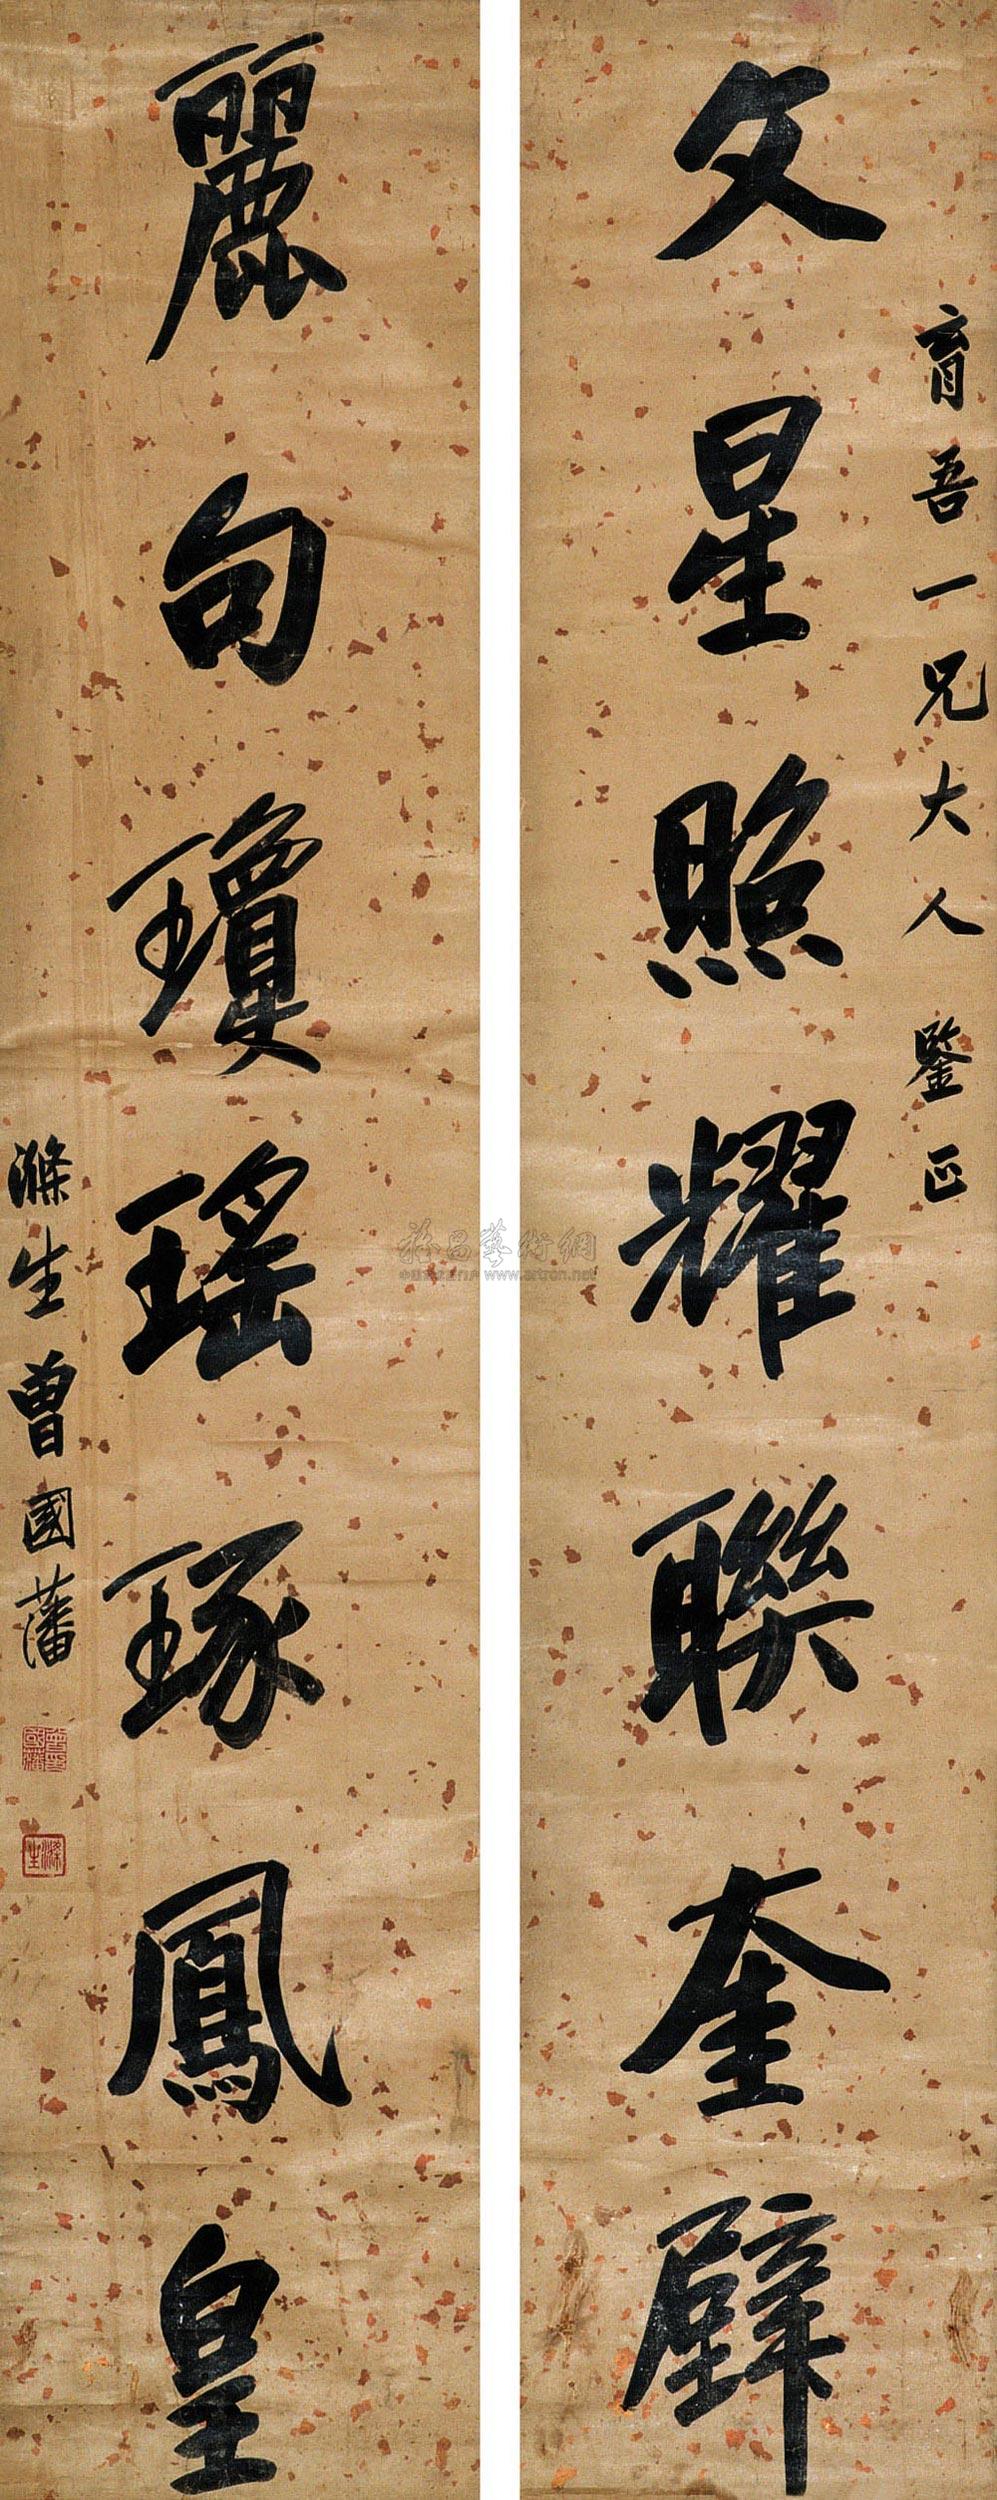 育吾一兄大人鑒正
文星照耀聯奎壁
麗句瓊瑤琢鳳皇
滌生曾國藩
曾國藩印
滌生
www.artron.net